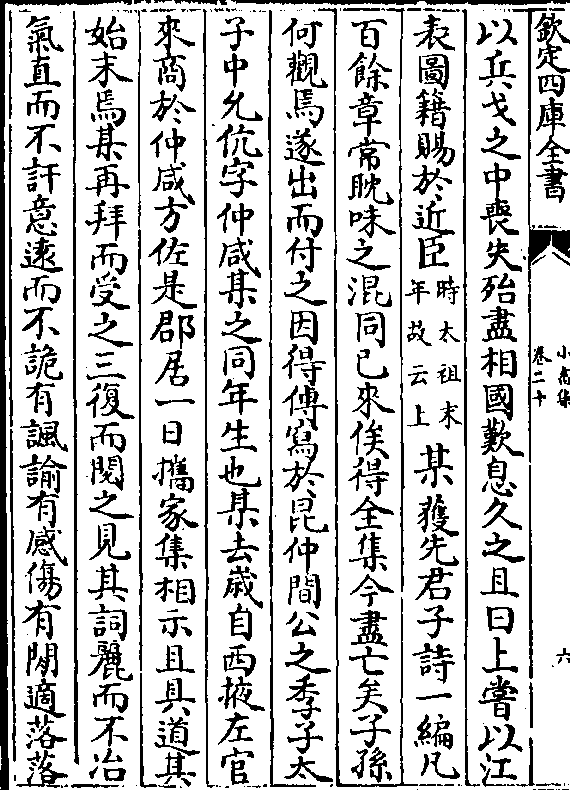 欽定四庫全書
小畜集
卷二十
六
以兵戈之中喪失殆盡相國歎息久之且曰上嘗以江
表圖籍賜於近臣時太祖末年故云上某獲先君子詩一編凡
百餘章常耽味之混同已來俟得全集今盡亡矣子孫
何觀焉遂出而付之因得傳寫於昆仲間公之季子太
子中允伉字仲咸某之同年生也某去歲自西掖左官
來商於仲咸方佐是郡居一日攜家集相示且具道其
始末焉某再拜而受之三復而閱之見其詞麗而不冶
氣直而不訐意遠而不詭有諷諭有感傷有閒適落落